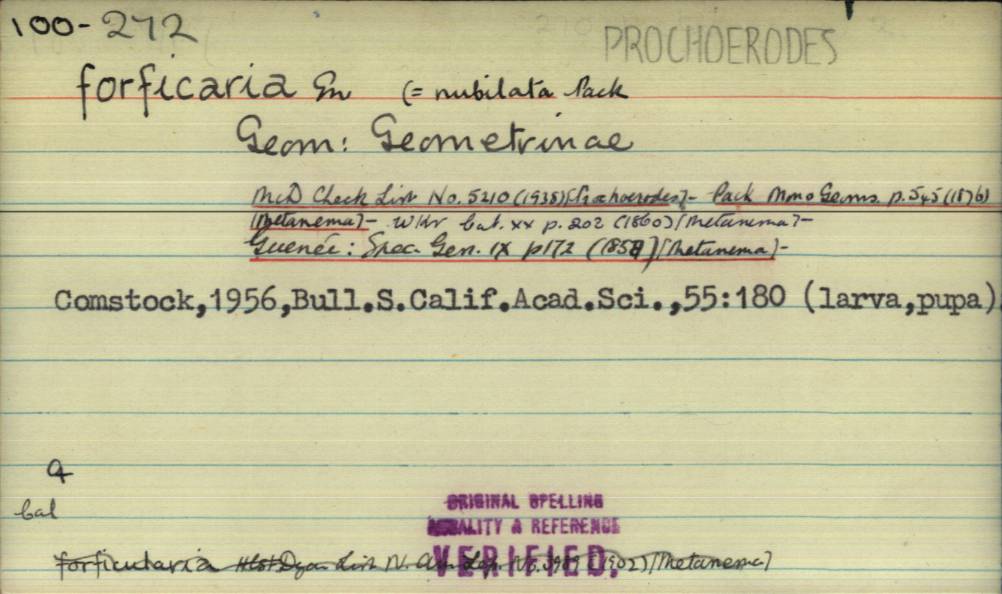 100-272
PROCHOERODES
forficaria Gn (= nubilata Pack
Geom: Geometrinae
McD Check List No. 5210 (1938) [Prochoerodes] - Pack Mono Geoms. p. 545 (1876)
[Metanema] - Wkr Cat. xx p. 202 (1860) [Metanema] -
Guenée: Spec. Gen. IX p172 (1857) [Metanema] -
Comstock,1956,Bull.S.Calif.Acad.Sci.,55:180 (larva,pupa)
Cal
ORIGINAL SPELLING
LOCALITY & REFERENCE
VERIFIED.
forficularia Dyar List N. Am Lep. No. 3989 (1902) [Metanema]